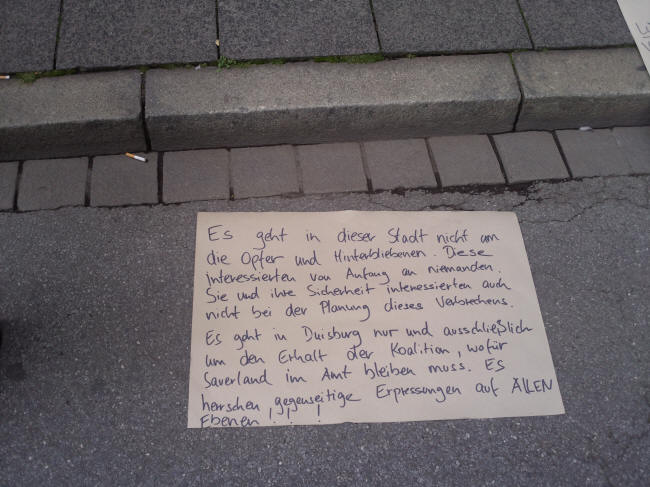 Es geht in dieser Stadt nicht um
die Opfer und Hinterbliebenen. Diese
interessierten von Anfang an niemanden.
Sie und ihre Sicherheit interessierten auch
nicht bei der Planung dieses Verbrechens.
Es geht in Duisburg nur und ausschließlich
um den Erhalt der Koalition, wofür
Sauerland im Amt bleiben muss. Es
herrschen gegenseitige Erpressungen auf ALLEN
Ebenen!!!